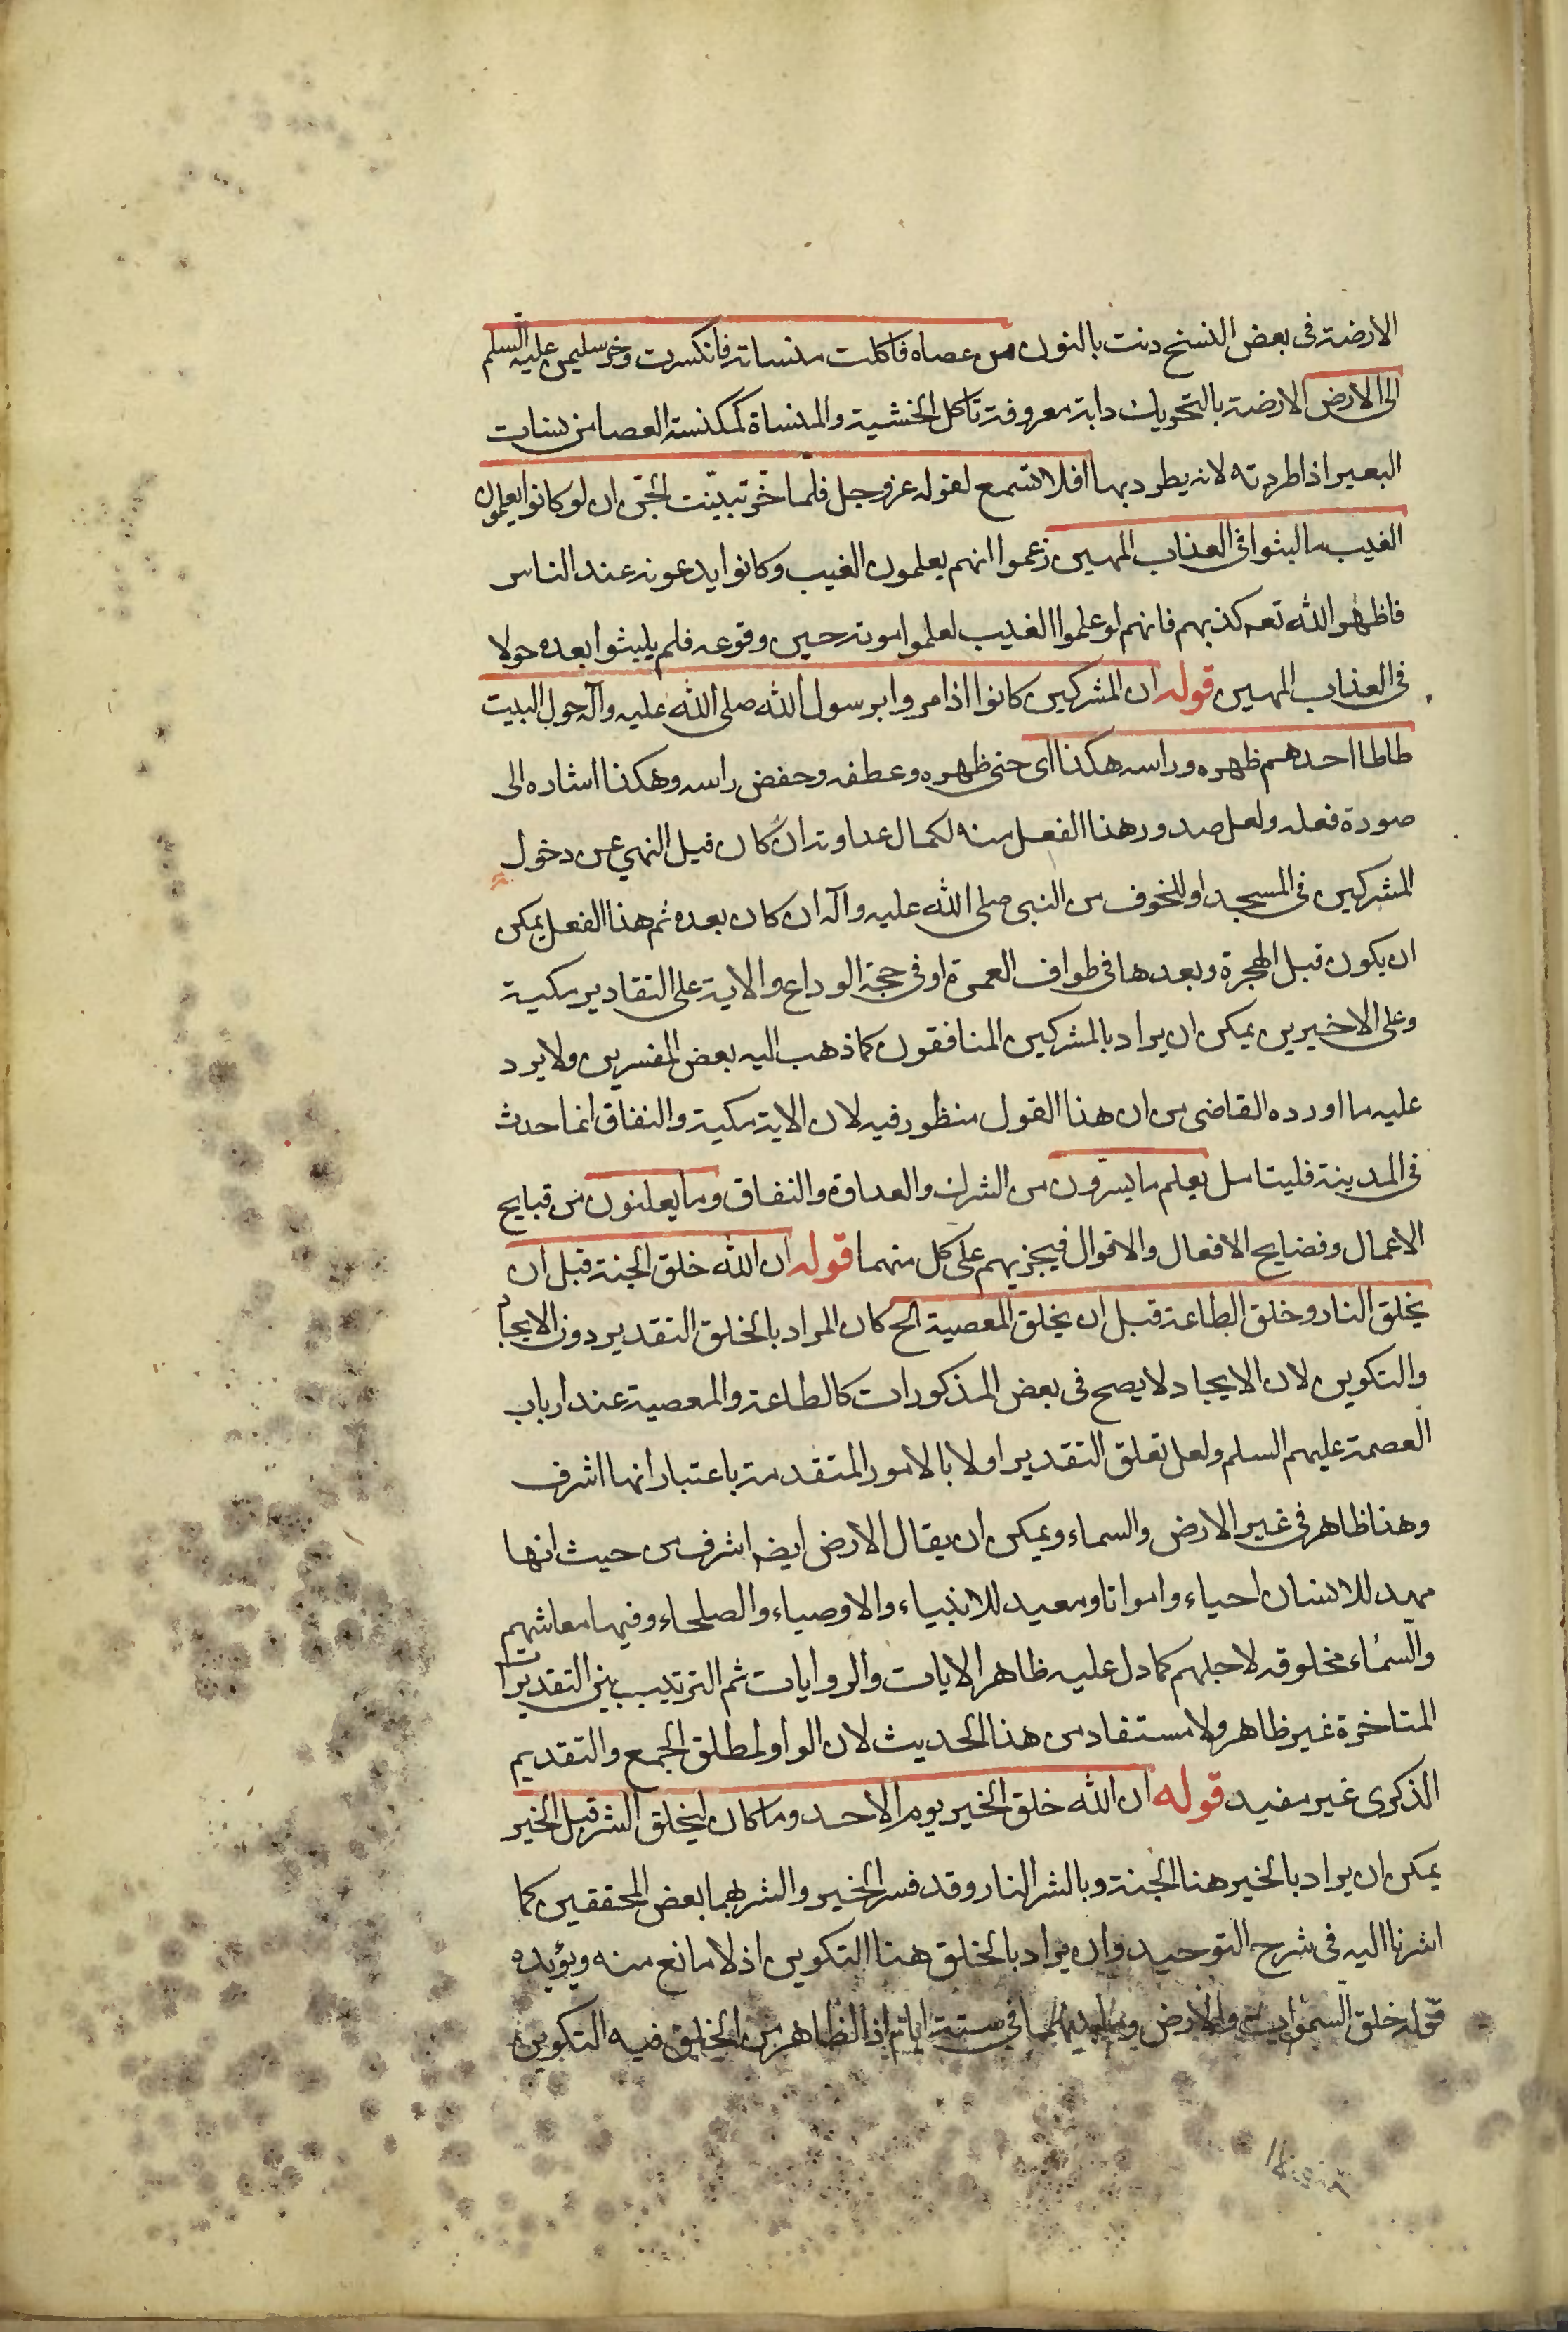 الارضة فى بعض النسخ دنت بالنون من عصاه فاكلت منساته فانكسرت وخر سليمن عليه السلم
الى الارض الارضة بالتحريك دابة معروفة تاكل الخشبة والمنساة كمكنسة العصا من نسات
البعير اذا طردته لانه يطرد بها افلا تسمع لقوله عز وجل فلما خر تبينت الجن ان لو كانوا يعلمون
الغيب ما لبثوا فى العذاب المهين زعموا انهم يعلمون الغيب وكانوا يدعونه عند الناس
فاظهر الله تعه كذبهم فانهم لو علموا الغيب لعلموا موته حين وقوعه فلم يلبثوا بعده حولا
فى العذاب المهين قوله ان المشركين كانوا اذا مروا برسول الله صلى الله عليه وآله حول البيت
طاطا احدهم ظهره وراسه هكذا اى حنى ظهره وعطفه وخفض راسه وهكذا اشاره الى
صورة فعله ولعل صدور هذا الفعل منه لكمال عداوته ان كان قبل النهي عن دخول
المشركين فى المسجد او للخوف من النبى صلى الله عليه وآله ان كان بعده ثم هذا الفعل يمكن
ان يكون قبل الهجرة وبعدها فى طواف العمرة او فى حجة الوداع والاية على التقادير مكية
وعلى الاخيرين يمكن ان يراد بالمشركين المنافقون كما ذهب اليه بعض المفسرين ولا يرد
عليه ما اورده القاضى من ان هذا القول منظور فيه لان الاية مكية والنفاق انما حدث
فى المدينة فليتامل يعلم ما يسرون من الشرك والعداوة والنفاق وما يعلنون من قبايح
الاعمال وفضايح الافعال والاقوال فيجزيهم على كل منهما قوله ان الله خلق الجنة قبل ان
يخلق النار وخلق الطاعة قبل ان يخلق المعصية الح كان المراد بالخلق التقدير دون الايجاد
والتكوين لان الايجاد لا يصح فى بعض المذكورات كالطاعة والمعصية عند ارباب
العصمة عليهم السلم ولعل تعلق التقدير اولا بالامور المتقدمة باعتبار انها اشرف
وهذا ظاهر فى غير الارض والسماء ويمكن ان يقال الارض ايضه اشرف من حيث انها
مهد للانسان احياء وامواتا ومعبد للانبياء والاوصياء والصلحاء وفيها معاشهم
والسماء مخلوقه لاجلهم كما دل عليه ظاهر الايات والروايات ثم الترتيب بين التقديرات
المتاخرة غير ظاهر ولا مستفاد من هذا الحديث لان الواو لمطلق الجمع والتقديم
الذكرى غير مفيد قوله ان الله خلق الخير يوم الاحد وما كان ليخلق الشر قبل الخير
يمكن ان يراد بالخير هنا الجنة وبالشر النار وقد فسر الخير والشر بهما بعض المحققين كما
اشرنا اليه فى شرح التوحيد وان يراد بالخلق هنا التكوين اذ لا مانع منه ويؤيده
قوله خلق السموات والارض وما بينهما فى ستة ايام اذ الظاهر من الخلق فيه التكوين